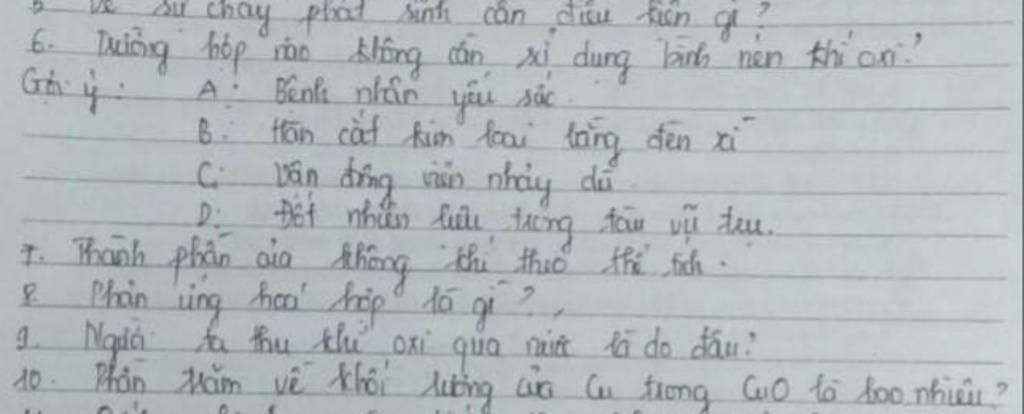 5 Về sự cháy phát sinh cần điều kiện gì?
6. Trường hợp nào không cần sử dụng bình nén khí oxi?
Gợi ý: A. Bệnh nhân yếu sức.
B. Hàn cắt kim loại bằng đèn xì
C. Vận động viên nhảy dù.
D. Đốt nhiên liệu trong tàu vũ trụ.
7. Thành phần của không khí theo thể tích.
8. Phản ứng hoá hợp là gì?
9. Người ta thu khí oxi qua nước là do đâu?
10. Phần trăm về khối lượng của Cu trong CuO là bao nhiêu?